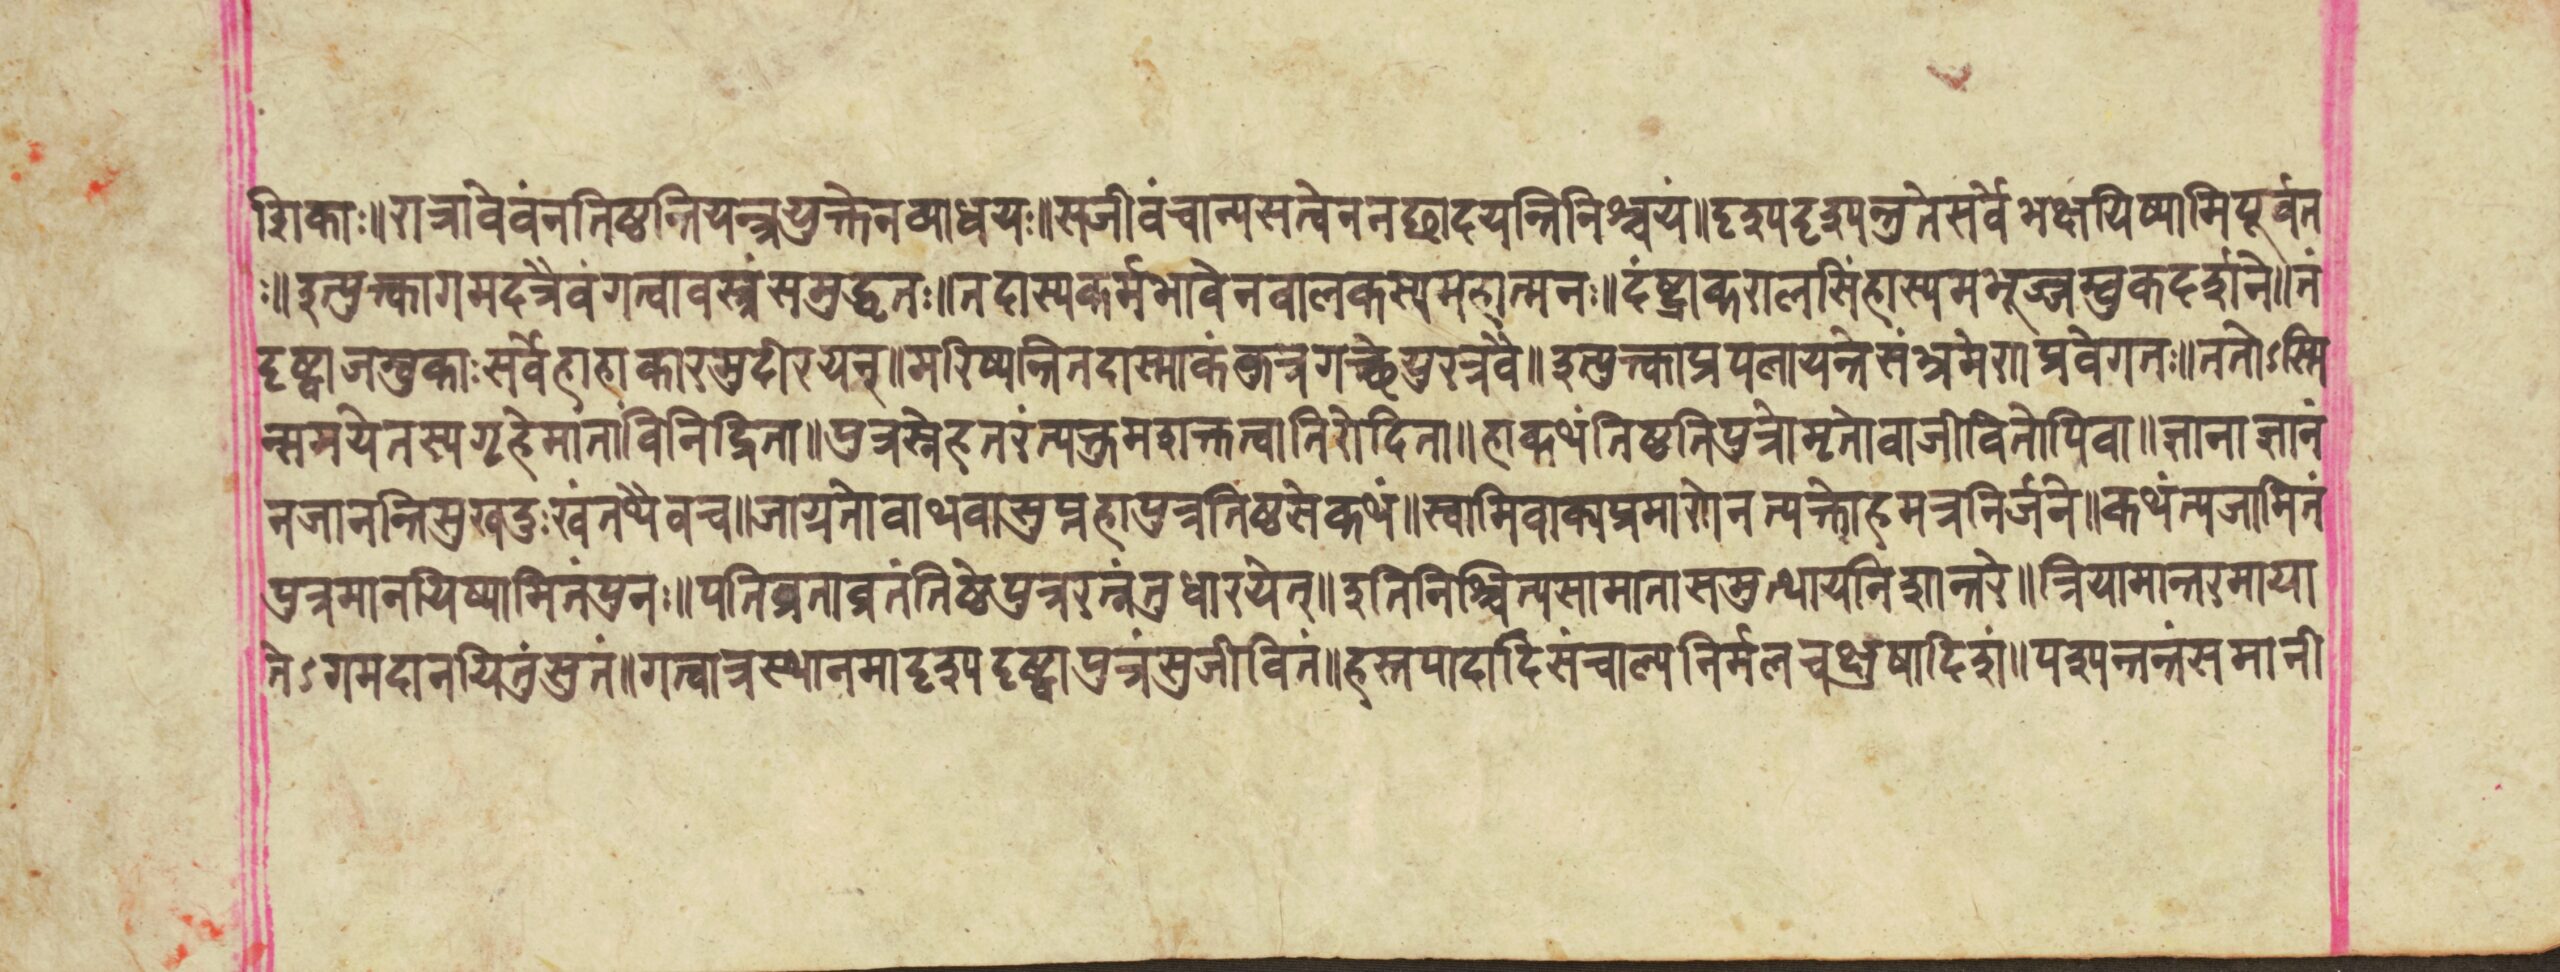 शिकाः॥रात्रावेवंनतिष्ठन्तियन्त्रयुक्तेनव्याधयः॥सजीवंचान्यसत्वेननछादयन्तिनिश्चयं॥दृश्यदृश्यन्तुतेसर्वेभक्षयिष्यामिपूर्वत
ः॥इत्युक्त्वागमदत्रैवंगत्वावस्त्रंसमुद्धृतः॥तदास्यकर्मभावेनबालकस्यमहात्मनः॥दंष्ट्राकरालसिंहास्यमभूज्जम्बुकदर्शने॥तं
दृष्ट्वाजम्बुकाःसर्वेहाहाकारमुदीरयन्॥मरिष्यन्तितदास्माकंकुत्रगच्छेयुरत्रवै॥इत्युक्त्वाप्रपलायन्तेसंभ्रमेणप्रवेगतः॥ततोऽस्मि
न्समयेतस्यगृहेमातांविनिद्रिता॥पुत्रस्नेहतरंत्यक्तमशक्तत्वातिरोदिता॥हाकथंतिष्ठतिपुत्रोमृतोवाजीवितोपिवा॥ज्ञानाज्ञानं
नजानन्तिसुखदुःखंतथैवच॥जाग्रतोवाथवासुप्तहापुत्रतिष्ठसेकथं॥स्वामिवाक्यप्रमाणेनत्यक्तोहमत्रनिर्जने॥कथंत्यजामितं
पुत्रमानयिष्यामितंपुनः॥पतिव्रताव्रतंतिष्ठेपुत्ररत्नंतुधारयेत्॥इतिनिश्चित्यसामातासमुत्थायनिशान्तरे॥त्रियामान्तरमाया
तेऽगमदानयितुंसुतं॥गत्वात्रस्थानमादृश्यदृष्ट्वापुत्रंसुजीवितं॥हस्तपादादिसंचाल्यनिर्मलचक्षुषादिशं॥पश्यन्तन्तंसमानी